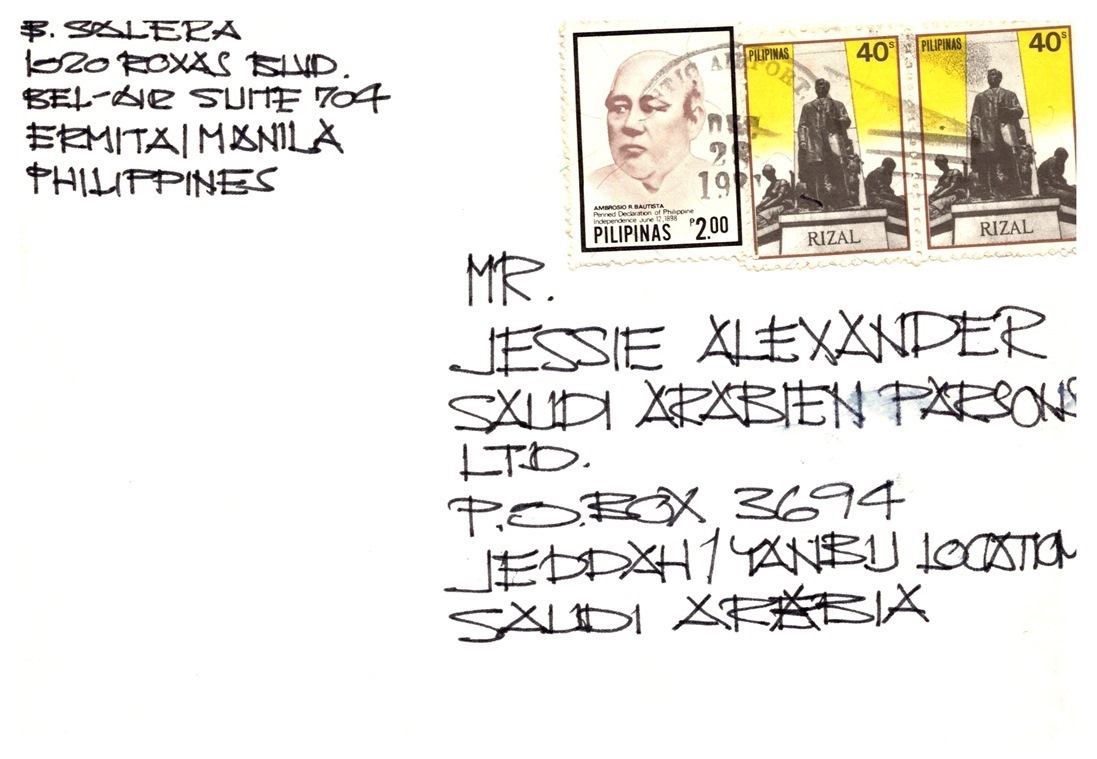 B. SALERA
1020 ROXAS BLVD.
BEL-AIR SUITE 704
ERMITA/MANILA
PHILIPPINES
AMBROSIO R. BAUTISTA
Penned Declaration of Philippine
Independence June 12, 1898
PILIPINAS P2.00
PILIPINAS 40s
RIZAL
PILIPINAS 40s
RIZAL
AIRPORT
DEC
MR.
JESSIE ALEXANDER
SAUDI ARABIEN PARSONS
LTD.
P.O.BOX 3694
JEDDAH/YANBU LOCATION
SAUDI ARABIA